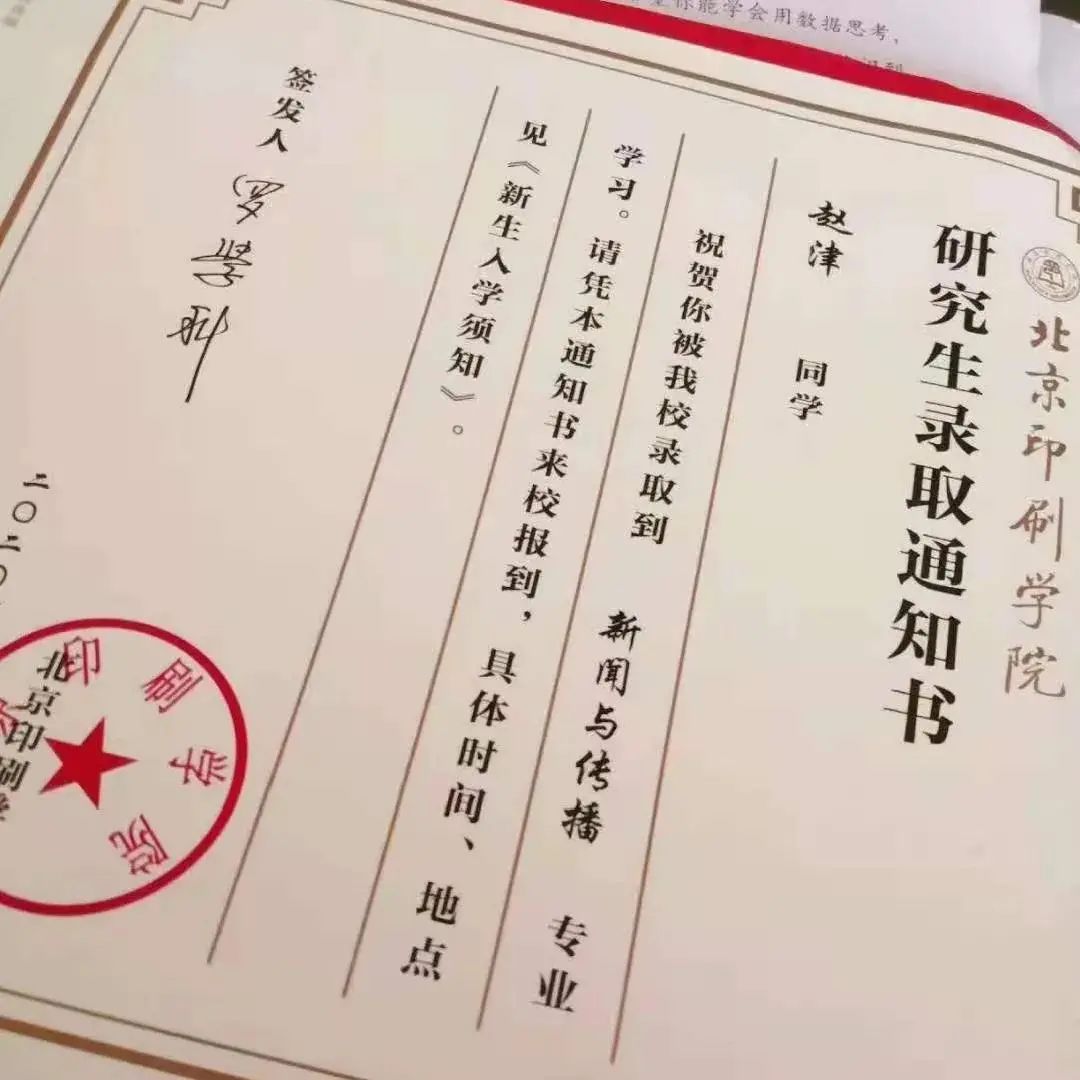 北京印刷学院
研究生录取通知书
赵津 同学
祝贺你被我校录取到 新闻与传播 专业
学习。请凭本通知书来校报到，具体时间、地点
见《新生入学须知》。
签发人 罗学科
二〇二〇
北京印刷学
印刷学院
你能学会用数据思考，